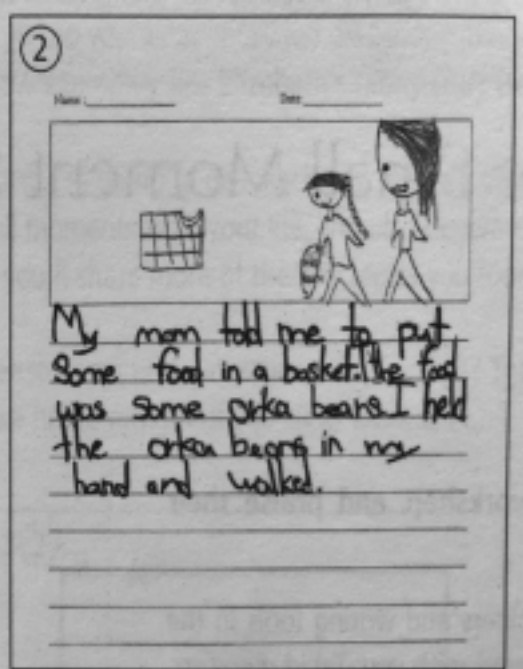 2
Name: Date:
My mom told me to put
Some food in a basket. the food
was some orka beans. I held
the orka beans in my
hand and walked.